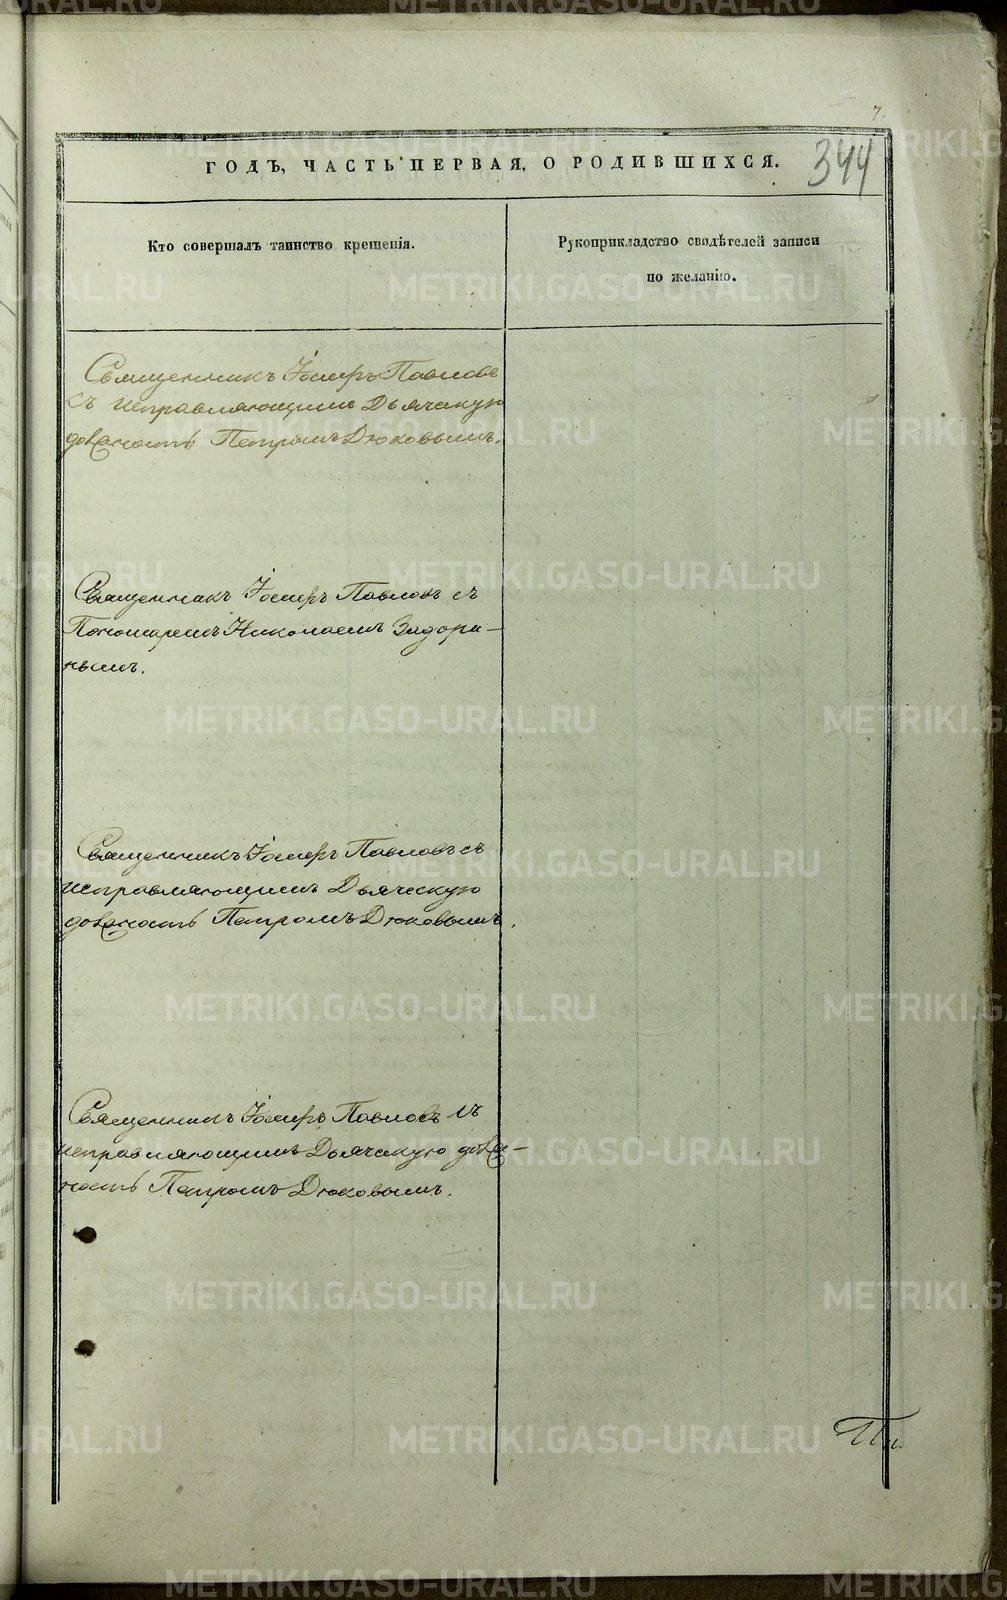 7.
344
ГОДЪ, ЧАСТЬ ПЕРВАЯ, О РОДИВШИХСЯ.
Кто совершалъ таинство крещенія.
Рукоприкладство свидѣтелей записи
по желанію.
Священникъ Іосифъ Павловъ
съ исправляющимъ Дьяческую
должность Петромъ Дюковымъ.
Священникъ Іосифъ Павловъ съ
Пономаремъ Николаемъ Задори-
нымъ.
Священникъ Іосифъ Павловъ съ
исправляющимъ Дьяческую
должность Петромъ Дюковымъ.
Священникъ Іосифъ Павловъ съ
исправляющимъ Дьяческую долж-
ность Петромъ Дюковымъ.
METRIKI.GASO-URAL.RU